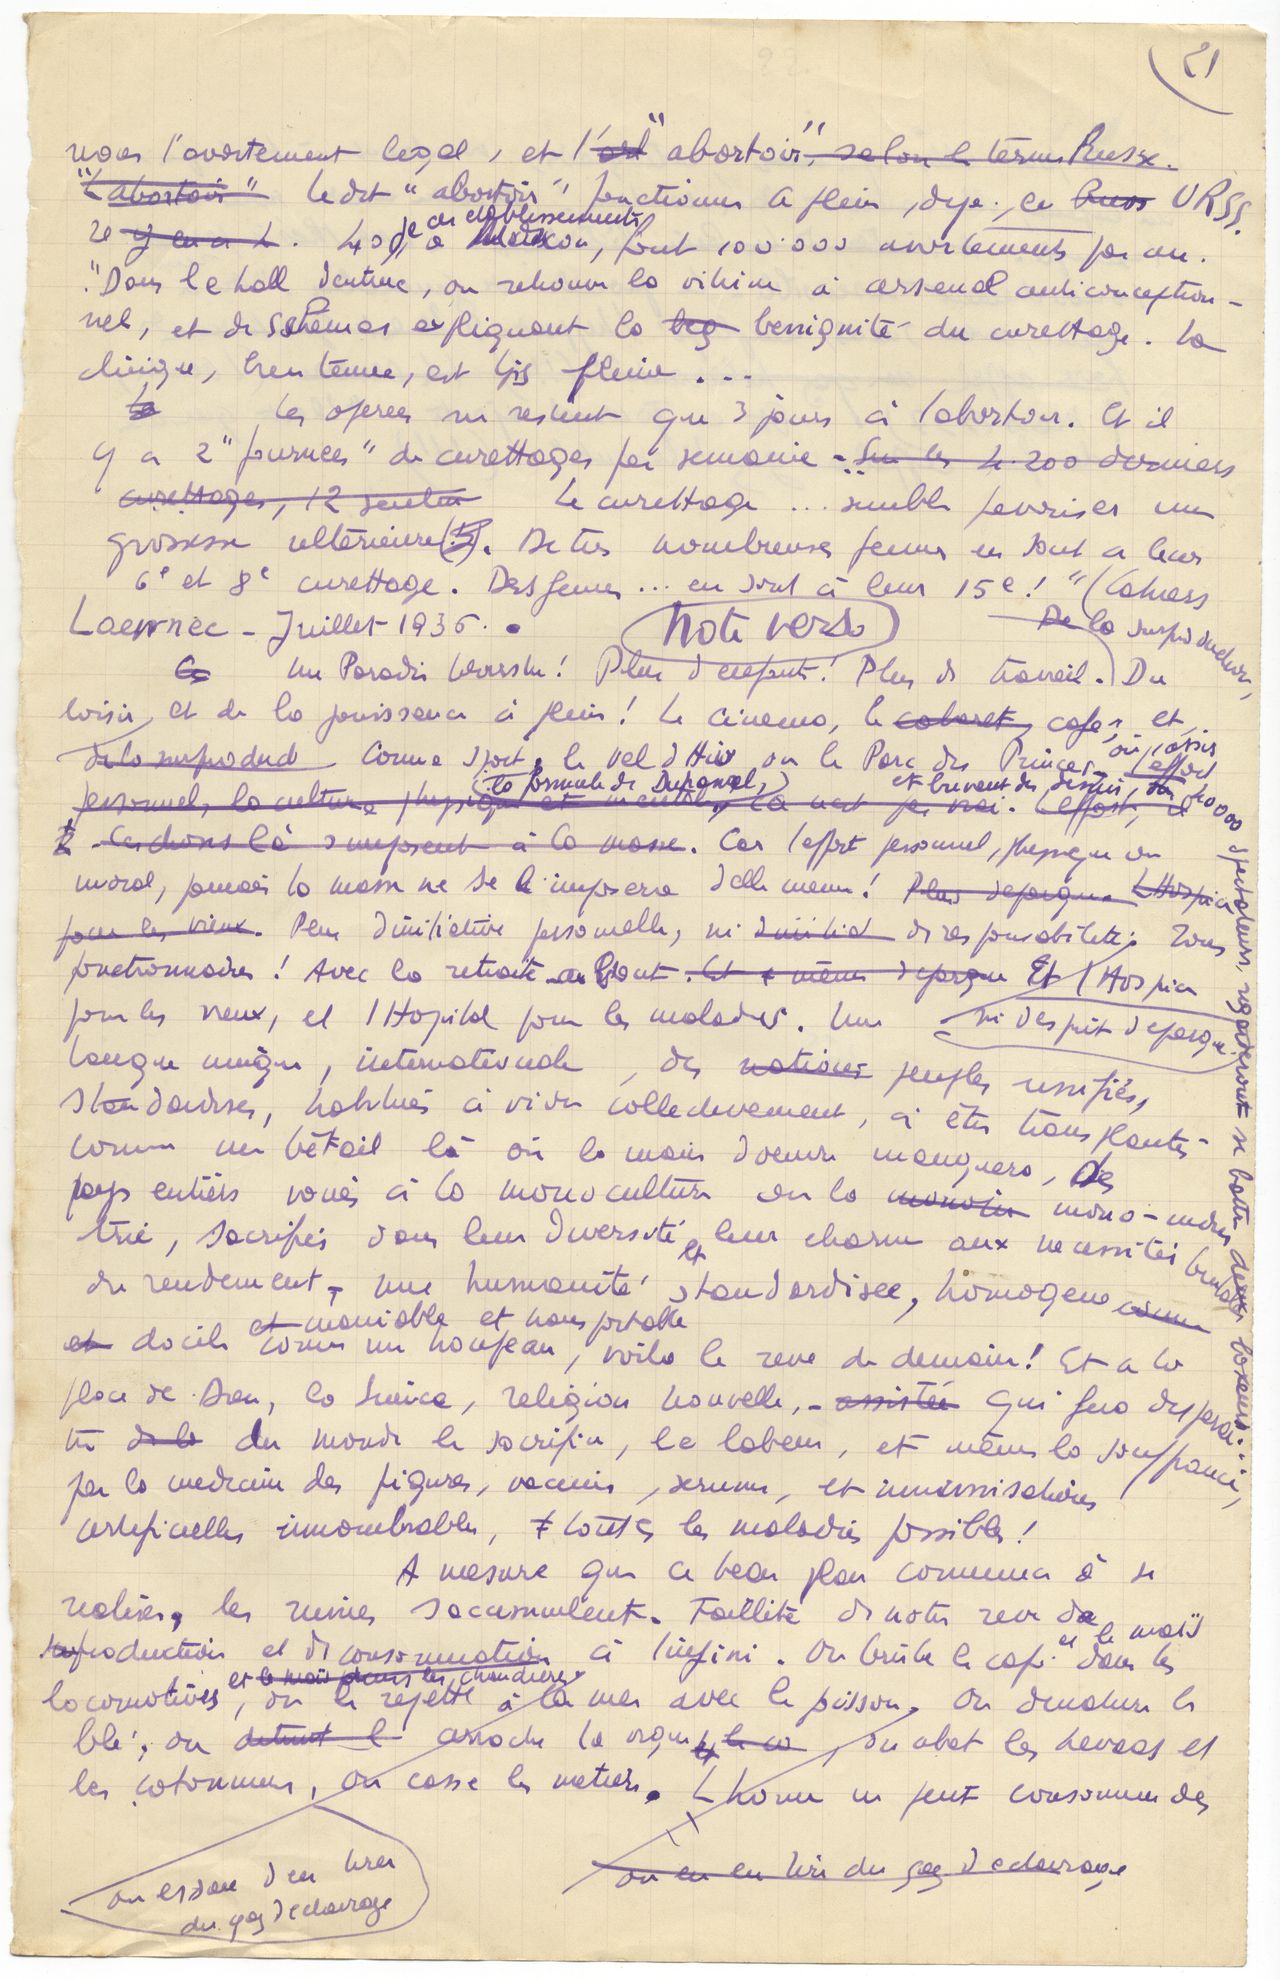 21
nous l'avortement légal, et l'"abortoir", selon le terme Russe.
"L'abortoir" Le dit "abortoir" fonctionne à plein, déjà, en URSS.
de ces établissements
Le y en a 4. 40 à Moscou, font 100.000 avortements par an.
"Dans le hall d'entrée, on retrouve la vitrine à arsenal anticonception-
nel, et des Schémas expliquant la beg bénignité du curettage. La
clinique, bien tenue, est très pleine...
La Les opérées ne restent que 3 jours à l'abortoir. Et il
y a 2 "fournées" de curettages par semaine - Sur les 4.200 derniers
curettages, 12 seulem Le curettage ... semble favoriser une
grossesse ultérieure. De très nombreuses femmes en sont à leur
6e et 8e curettage. Des femmes ... en sont à leur 15e!" (Cahiers
Laennec - Juillet 1936.
Note verso
De la surproduction,
Un Paradis terrestre! Plus d'enfants! Plus de travail. Du
loisir, et de la jouissance à plein! Le cinéma, le cabaret, café, et
de la surproduct Comme sport, le vel d'Hiv ou le Parc des Princes, où, assis
(la formule de Duhamel,) et buvant des demis, 40000 spectateurs, regarderont se battre deux boxeurs...
personnel, la culture physique et morale, ça n'est pas vrai. L'effort, il
Ces choses là s'imposent à la masse. Car l'effort personnel, physique ou
moral, jamais la masse ne se l'imposera d'elle même! Plus d'épargne L'Hospice
pour les vieux. Plus d'initiative personnelle, ni d'initiat de responsabilité. Tous
fonctionnaires! Avec la retraite au bout. Et même d'épargne Et l'Hospice
pour les vieux, et l'Hôpital pour les malades. Une
ni d'esprit d'épargne.
langue unique, internationale, des nations peuples unifiés,
standardisés, habitués à vivre collectivement, à être transplantés
comme un bétail là où la main d'oeuvre manquera, Des
pays entiers voués à la monoculture ou la monoin mono-indus
trie, sacrifiés dans leur diversité et leur charme aux nécessités brutales
du rendement, une humanité standardisée, homogène comme
et maniable et transportable
et docile comme un troupeau, voilà le rêve de demain! Et à la
place de Dieu, la Science, religion nouvelle, - assistée qui fera disparaî-
tre de la du monde le sacrifice, le labeur, et même la souffrance,
par la médecine des piqûres, vaccins, sérums, et immunisations
artificielles innombrables, toutes les maladies possibles!
A mesure que ce beau plan commence à se
réaliser, les ruines s'accumulent. Faillite de notre rêve de
surproduction et de consommation à l'infini. On brûle le café et le maïs dans les
et le maïs dans les chaudières
locomotives, on le rejette à la mer avec le poisson. On dénature le
blé, on détruit l arrache la vigne, on abat les hévéas et
les cotonniers, on casse les métiers. L'homme ne peut consommer des
on essaie d'en tirer
du gaz d'éclairage
on en en tire du gaz d'éclairage